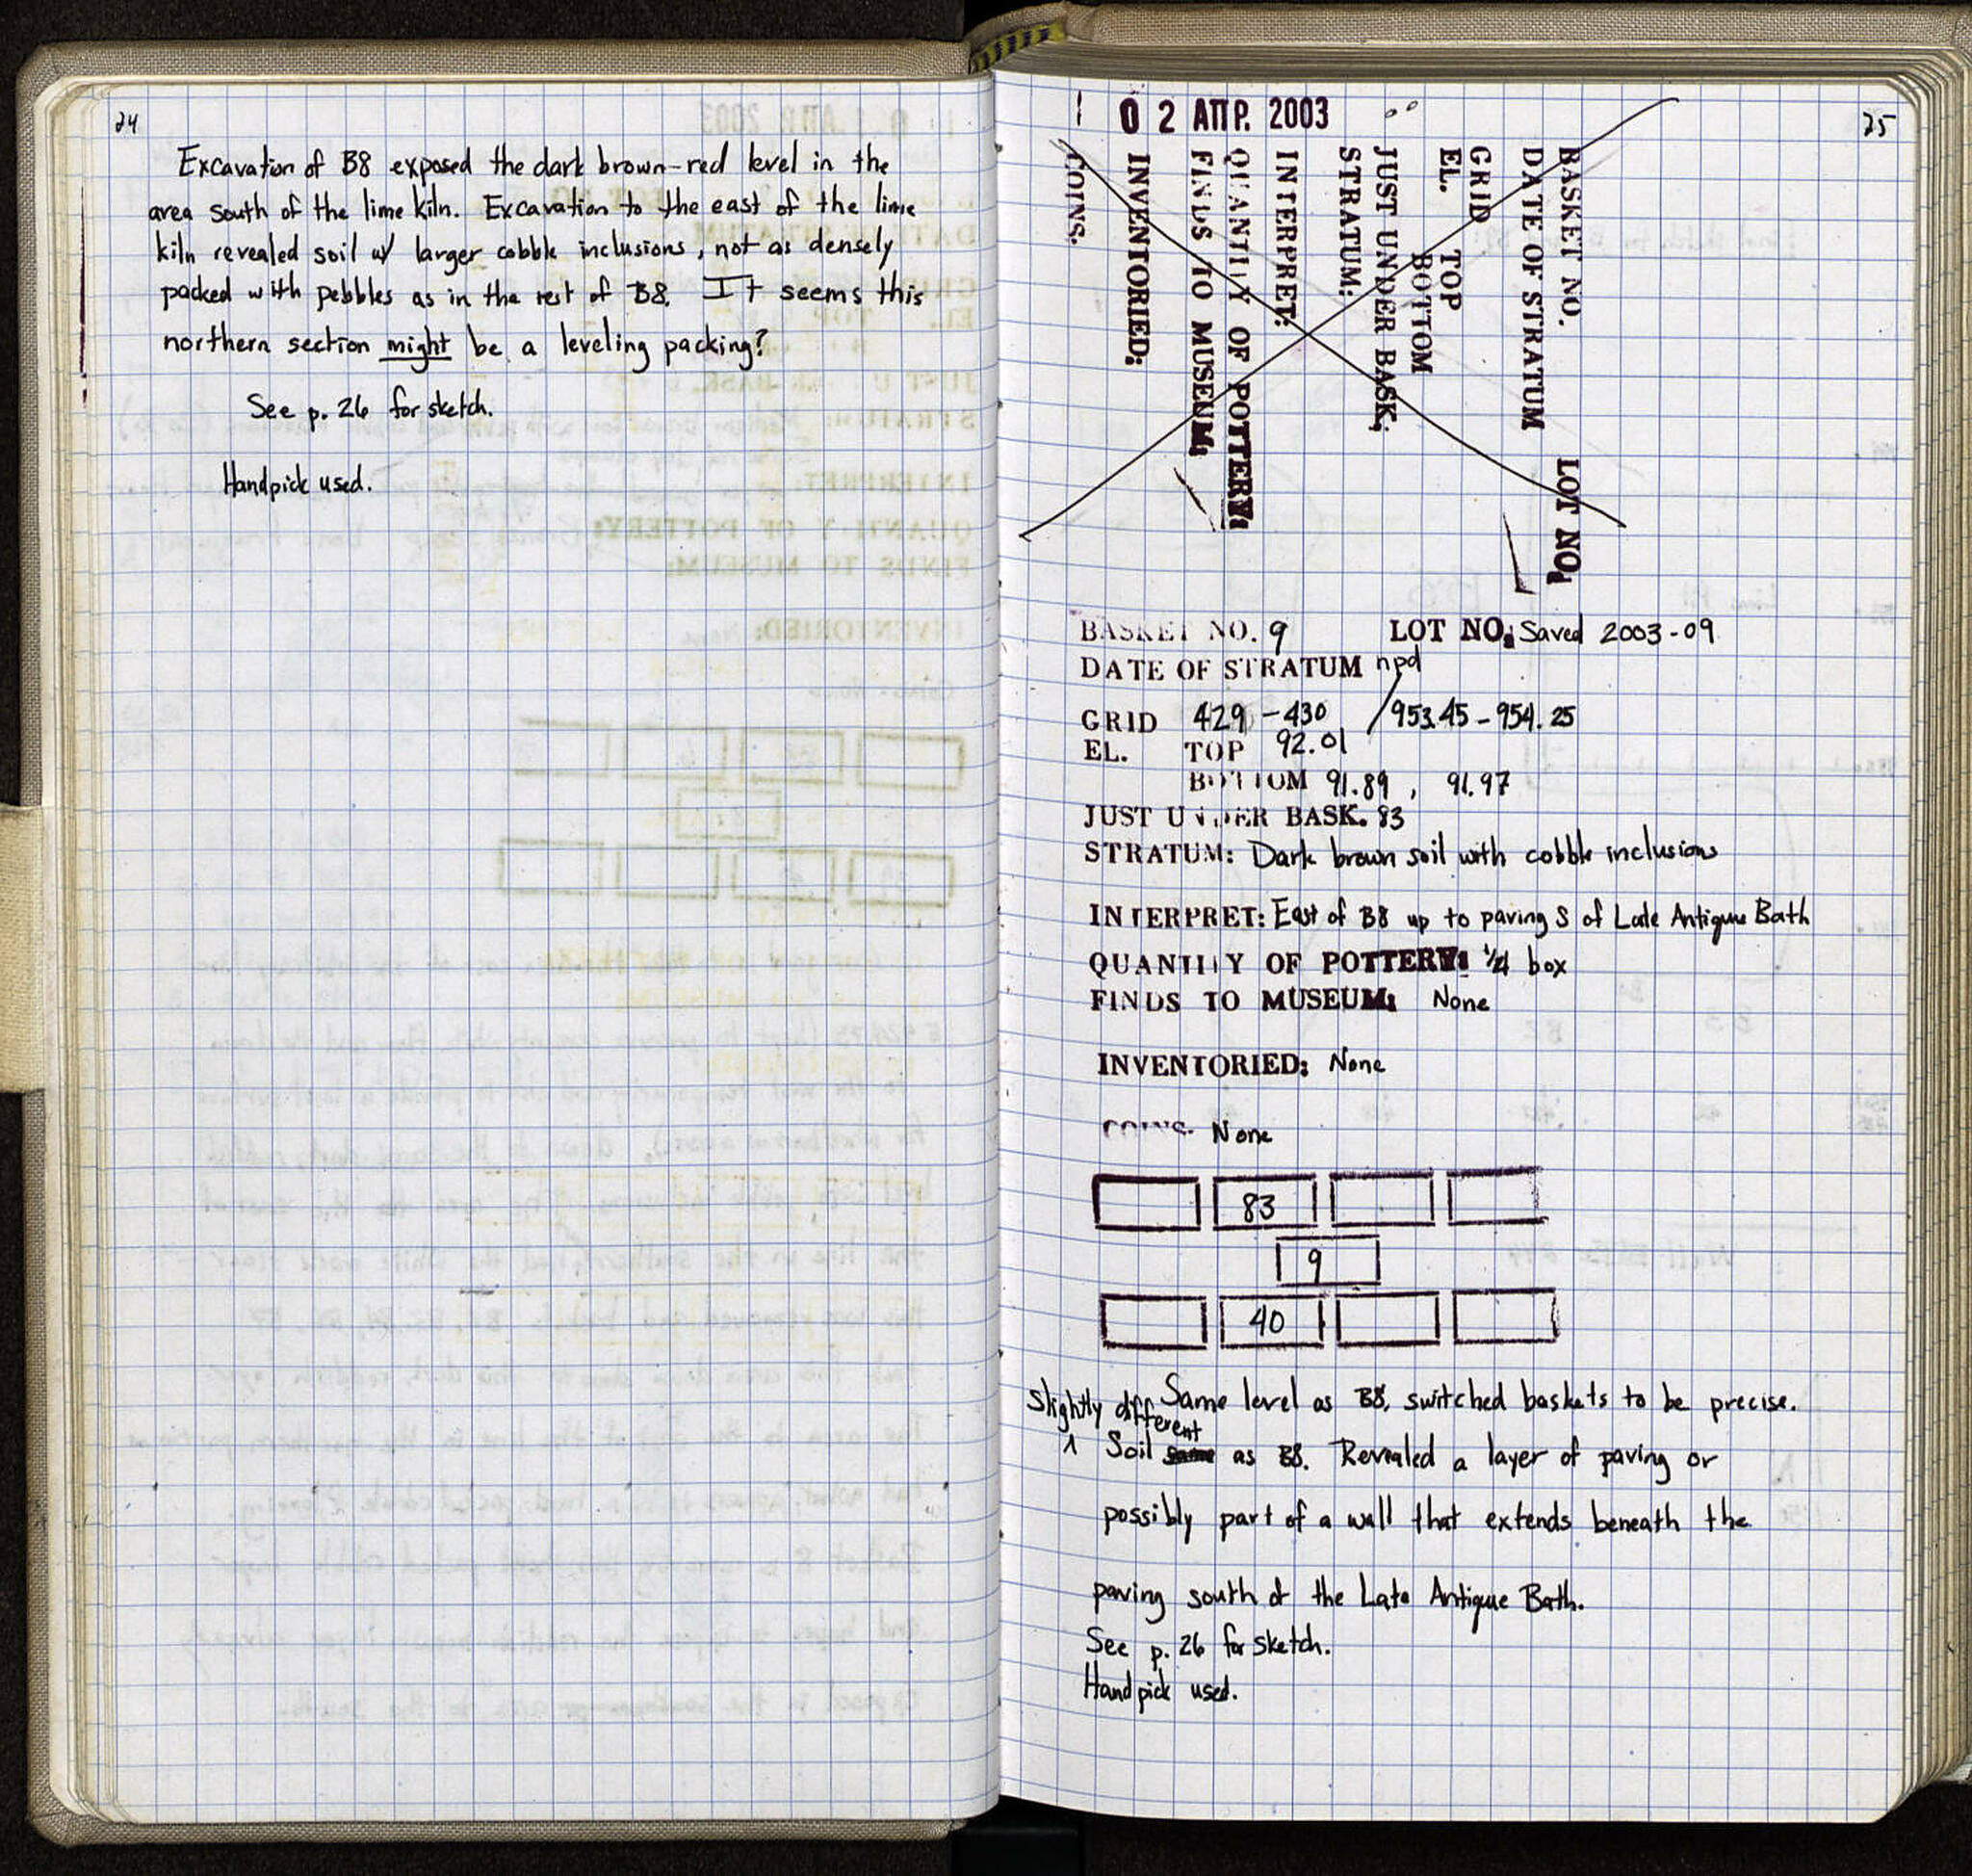 24
Excavation of B8 exposed the dark brown-red level in the
area south of the lime kiln. Excavation to the east of the lime
kiln revealed soil w/ larger cobble inclusions, not as densely
packed with pebbles as in the rest of B8. It seems this
northern section might be a leveling packing?
See p. 26 for sketch.
Handpick used.
25
02 ΑΠΡ. 2003
BASKET NO. LOT NO.
DATE OF STRATUM
GRID
EL. TOP
BOTTOM
JUST UNDER BASK.
STRATUM:
INTERPRET:
QUANTITY OF POTTERY:
FINDS TO MUSEUM:
INVENTORIED:
COINS.
BASKET NO. 9 LOT NO. Saved 2003-09
DATE OF STRATUM npd
GRID 429-430 / 953.45-954.25
EL. TOP 92.01
BOTTOM 91.89, 91.97
JUST UNDER BASK. 83
STRATUM: Dark brown soil with cobble inclusions
INTERPRET: East of B8 up to paving S of Late Antique Bath
QUANTITY OF POTTERY: 1/4 box
FINDS TO MUSEUM: None
INVENTORIED: None
COINS. None
83
9
40
Same level as B8, switched baskets to be precise.
Slightly different
Soil same as B8. Revealed a layer of paving or
possibly part of a wall that extends beneath the
paving south of the Late Antique Bath.
See p. 26 for sketch.
Handpick used.